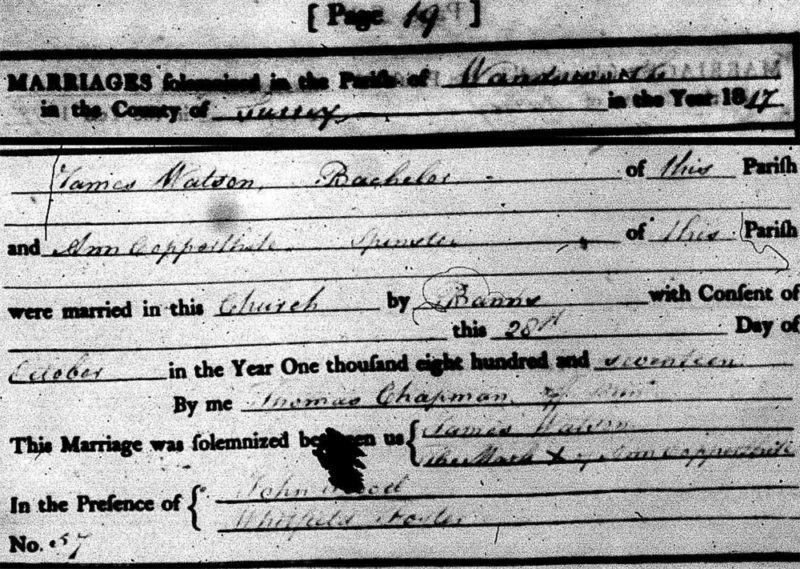 [ Page 19 ]
MARRIAGES ſolemnized in the Pariſh of Wandsworth
in the County of Surrey in the Year 1817
James Watson, Bachelor of this Pariſh
and Ann Copperthite Spinster of this Pariſh
were married in this Church by Banns with Conſent of
this 28th Day of
October in the Year One thouſand eight hundred and seventeen
By me Thomas Chapman
This Marriage was ſolemnized between us { James Watson
The Mark X of Ann Copperthite
In the Preſence of { John Wood
Whitfield Foster
No. 57